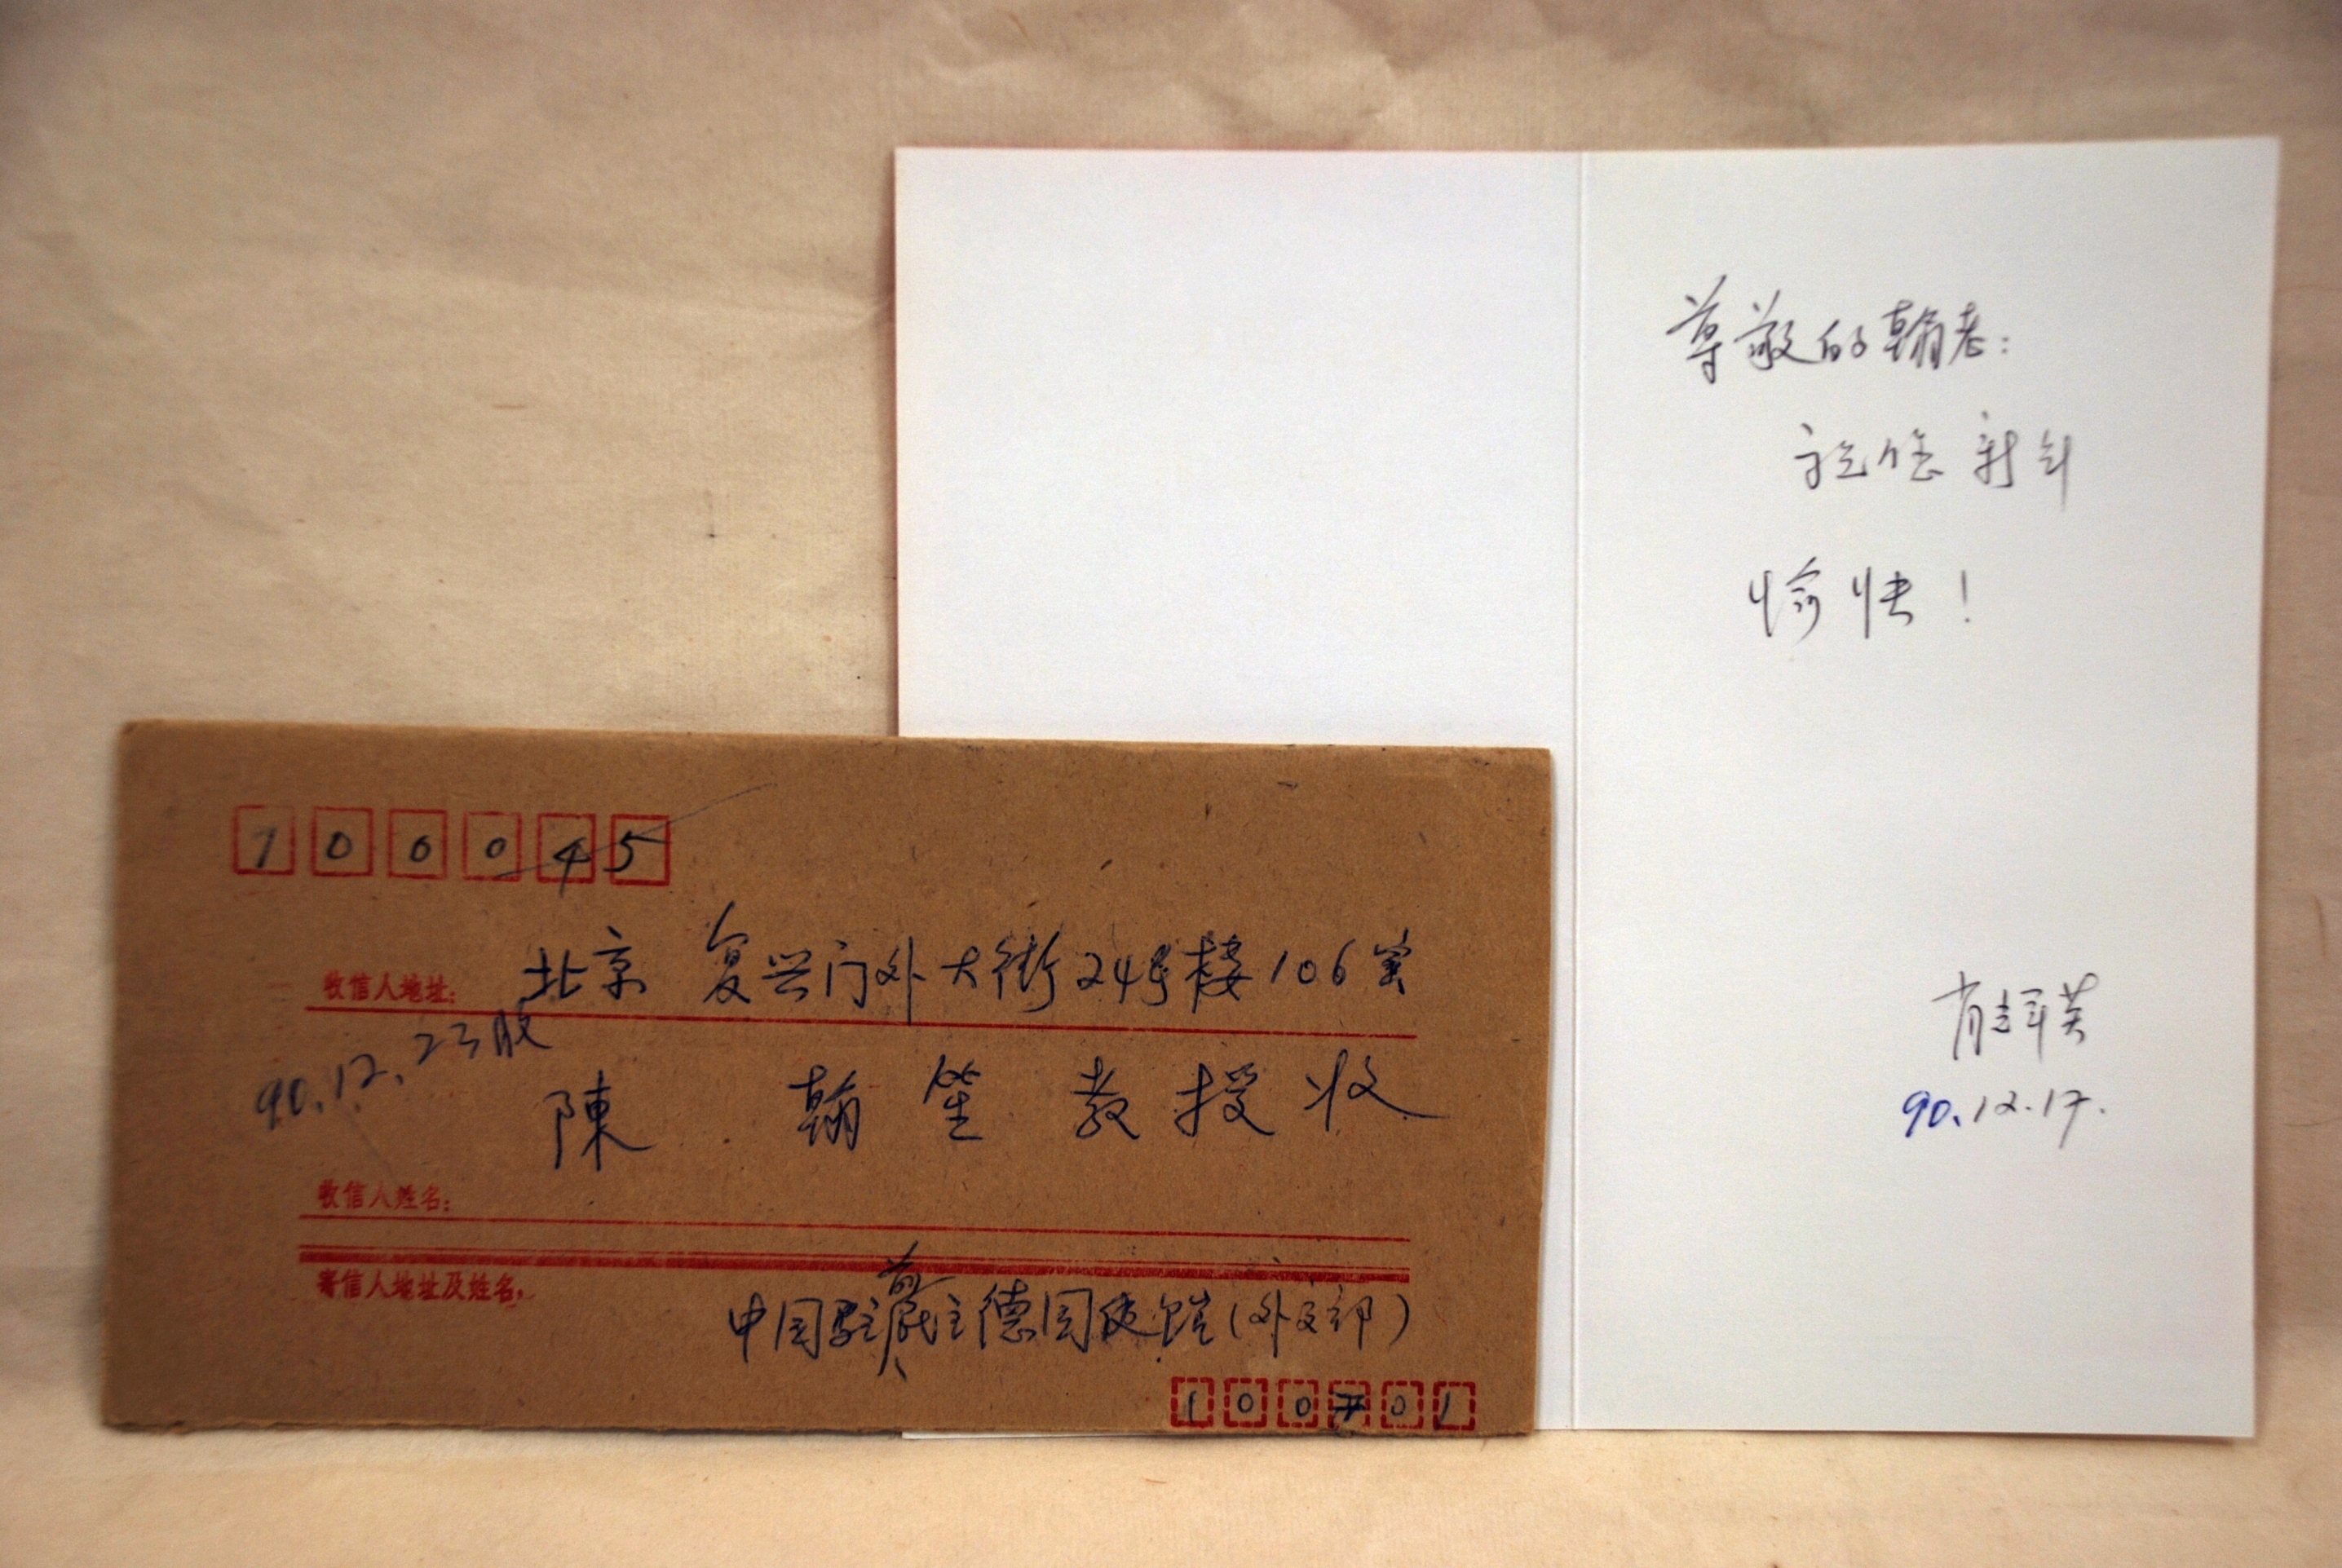 100045
收信人地址: 北京 复兴门外大街24号楼106室
90.12.23收
陳 翰笙 教授收
收信人姓名:
寄信人地址及姓名:
中国驻前民主德国使馆(外交部)
100701
尊敬的翰老:
祝您新年
愉快!
肖辉英
90.12.17.